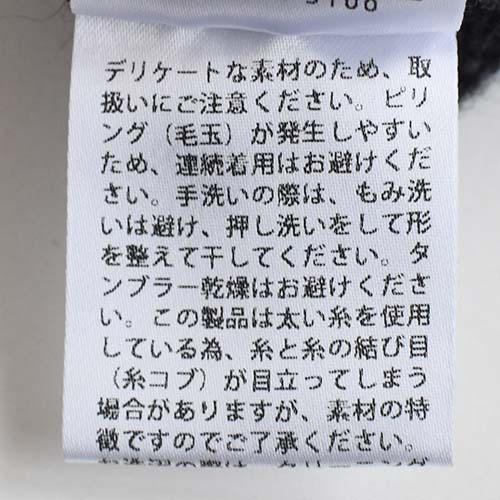 デリケートな素材のため、取
扱いにご注意ください。ピリ
ング（毛玉）が発生しやすい
ため、連続着用はお避けくだ
さい。手洗いの際は、もみ洗
いは避け、押し洗いをして形
を整えて干してください。タ
ンブラー乾燥はお避けくださ
い。この製品は太い糸を使用
している為、糸と糸の結び目
（糸コブ）が目立ってしまう
場合がありますが、素材の特
徴ですのでご了承ください。